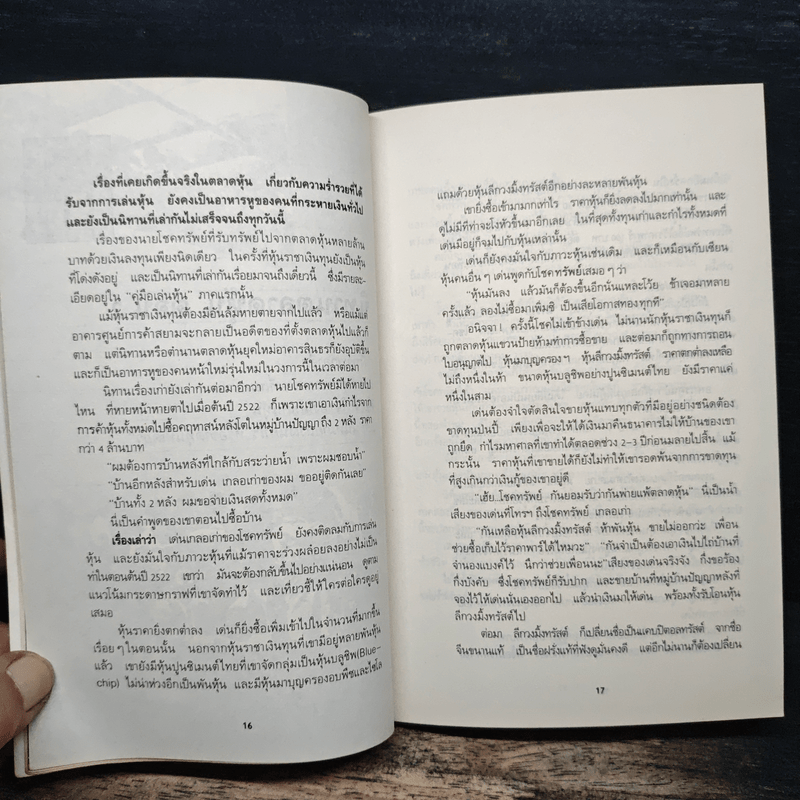 เรื่องที่เคยเกิดขึ้นจริงในตลาดหุ้น เกี่ยวกับความร่ำรวยที่ได้
รับจากการเล่นหุ้น ยังคงเป็นอาหารหูของคนที่กระหายเงินทั่วไป
และยังเป็นนิทานที่เล่ากันไม่เสร็จจนถึงทุกวันนี้
เรื่องของนายโชคทรัพย์ที่รับทรัพย์ไปจากตลาดหุ้นหลายล้าน
บาทด้วยเงินลงทุนเพียงนิดเดียว ในครั้งที่หุ้นราชาเงินทุนยังเป็นหุ้น
ที่โด่งดังอยู่ และเป็นนิทานที่เล่ากันเรื่อยมาจนถึงเดี๋ยวนี้ ซึ่งมีรายละ-
เอียดอยู่ใน "คู่มือเล่นหุ้น" ภาคแรกนั้น
แม้หุ้นราชาเงินทุนต้องมีอันล้มหายตายจากไปแล้ว หรือแม้แต่
อาคารศูนย์การค้าสยามจะกลายเป็นอดีตของที่ตั้งตลาดหุ้นไปแล้วก็
ตาม แต่นิทานหรือตำนานตลาดหุ้นยุคใหม่อาคารสินธรก็ยังอุบัติขึ้น
และก็เป็นอาหารหูของคนหน้าใหม่รุ่นใหม่ในวงการนี้ในเวลาต่อมา
นิทานเรื่องเก่ายังเล่ากันต่อมาอีกว่า นายโชคทรัพย์มิได้หายไป
ไหน ที่หายหน้าหายตาไปเมื่อต้นปี 2522 ก็เพราะเขาเอาเงินกำไรจาก
การค้าหุ้นทั้งหมดไปซื้อคฤหาสน์หลังโตในหมู่บ้านปัญญาถึง 2 หลัง ราคา
กว่า 4 ล้านบาท
"ผมต้องการบ้านหลังที่ใกล้กับสระว่ายน้ำ เพราะผมชอบน้ำ"
"บ้านอีกหลังสำหรับเด่น เกลอเก่าของผม ขออยู่ติดกันเลย"
"บ้านทั้ง 2 หลัง ผมขอจ่ายเงินสดทั้งหมด"
นี่เป็นคำพูดของเขาตอนไปซื้อบ้าน
เรื่องเล่าว่า เด่นเกลอเก่าของโชคทรัพย์ ยังคงติดลมกับการเล่น
หุ้น และยังมั่นใจกับภาวะหุ้นที่แม้ราคาจะร่วงผล็อยลงอย่างไม่เป็น
ท่าในตอนต้นปี 2522 เขาว่า มันจะต้องกลับขึ้นไปอย่างแน่นอน ดูตาม
แนวโน้มกระดาษกราฟที่เขาจัดทำไว้ และเที่ยวชี้ให้ใครต่อใครดูอยู่
เสมอ
หุ้นราคายิ่งตกต่ำลง เด่นก็ยิ่งซื้อเพิ่มเข้าไปในจำนวนที่มากขึ้น
เรื่อยๆในตอนนั้น นอกจากหุ้นราชาเงินทุนที่เขามีอยู่หลายพันหุ้น
แล้ว เขายังมีหุ้นปูนซิเมนต์ไทยที่เขาจัดกลุ่มเป็นหุ้นบลูชิพ(Blue-
chip) ไม่น่าห่วงอีกเป็นพันหุ้น และมีหุ้นมาบุญครองอบพืชและไซโล
16
แถมด้วยหุ้นลีกวงมิ้งทรัสต์อีกอย่างละหลายพันหุ้น
เขายิ่งซื้อเข้ามามากเท่าไร ราคาหุ้นก็ยิ่งลดลงไปมากเท่านั้น และ
ดูไม่มีทีท่าจะโงหัวขึ้นมาอีกเลย ในที่สุดทั้งทุนเก่าและกำไรทั้งหมดที่
เด่นมีอยู่ก็จมไปกับหุ้นเหล่านั้น
เด่นก็ยังคงมั่นใจกับภาวะหุ้นเช่นเดิม และก็เหมือนกับเซียน
หุ้นคนอื่นๆ เด่นพูดกับโชคทรัพย์เสมอๆ ว่า
"หุ้นมันลง แล้วมันก็ต้องขึ้นอีกนั่นแหละโว้ย ข้าเจอมาหลาย
ครั้งแล้ว ลองไม่ซื้อมาเพิ่มซิ เป็นเสียโอกาสทองทุกที"
อนิจจา! ครั้งนี้โชคไม่เข้าข้างเด่น ไม่นานนักหุ้นราชาเงินทุนก็
ถูกตลาดหุ้นแขวนป้ายห้ามทำการซื้อขาย และต่อมาก็ถูกทางการถอน
ใบอนุญาตไป หุ้นมาบุญครองฯ หุ้นลีกวงมิ้งทรัสต์ ราคาตกต่ำลงเหลือ
ไม่ถึงหนึ่งในห้า ขนาดหุ้นบลูชิพอย่างปูนซิเมนต์ไทย ยังมีราคาแค่
หนึ่งในสาม
เด่นต้องจำใจตัดสินใจขายหุ้นแทบทุกตัวที่มีอยู่อย่างชนิดต้อง
ขาดทุนป่นปี้ เพียงเพื่อจะให้ได้เงินมาคืนธนาคารไม่ให้บ้านของเขา
ถูกยึด กำไรมหาศาลที่เขาทำได้ตลอดช่วง 2-3 ปีก่อนมลายไปสิ้น แม้
กระนั้น ราคาหุ้นที่เขาขายได้ก็ยังไม่ทำให้เขารอดพ้นจากการขาดทุน
ที่สูงกว่าเงินกู้ของเขาอยู่ดี
"เฮ้ย..โชคทรัพย์ กันยอมรับว่ากันพ่ายแพ้ตลาดหุ้น" นี่เป็นน้ำ
เสียงของเด่นที่โทรฯ ถึงโชคทรัพย์ เกลอเก่า
"กันเหลือหุ้นลีกวงมิ้งทรัสต์ ห้าพันหุ้น ขายไม่ออกว่ะ เพื่อน
ช่วยซื้อเก็บไว้ราคาพาร์ได้ไหมวะ" "กันจำเป็นต้องเอาเงินไปไถ่บ้านที่
จำนองแบงค์ไว้ นึกว่าช่วยเพื่อนนะ"เสียงของเด่นจริงจัง กึ่งขอร้อง
กึ่งบังคับ ซึ่งโชคทรัพย์ก็รับปาก และขายบ้านที่หมู่บ้านปัญญาหลังที่
จองไว้ให้เด่นนั่นเองออกไป แล้วนำเงินมาให้เด่น พร้อมทั้งรับโอนหุ้น
ลีกวงมิ้งทรัสต์ไป
ต่อมา ลีกวงมิ้งทรัสต์ ก็เปลี่ยนชื่อเป็นแคปปิตอลทรัสต์ จากชื่อ
จีนขนานแท้ เป็นชื่อฝรั่งแท้ที่ฟังดูมั่นคงดี แต่อีกไม่นานก็ต้องเปลี่ยน
17